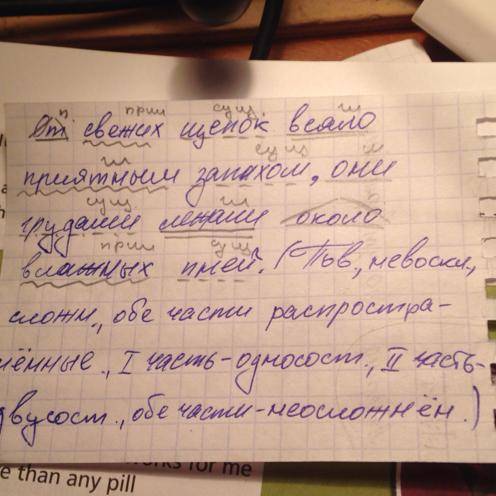 п прил сущ. гл
От свежих щепок веяло
гл сущ. м
приятным запахом, они
сущ. гл п
грудами лежали около
прил сущ
влажных пней. (Пов, невоскл,
сложн., обе части распростра-
нённые., I часть-односост., II часть-
двусост., обе части-неосложнён.)
works for me
e than any pill